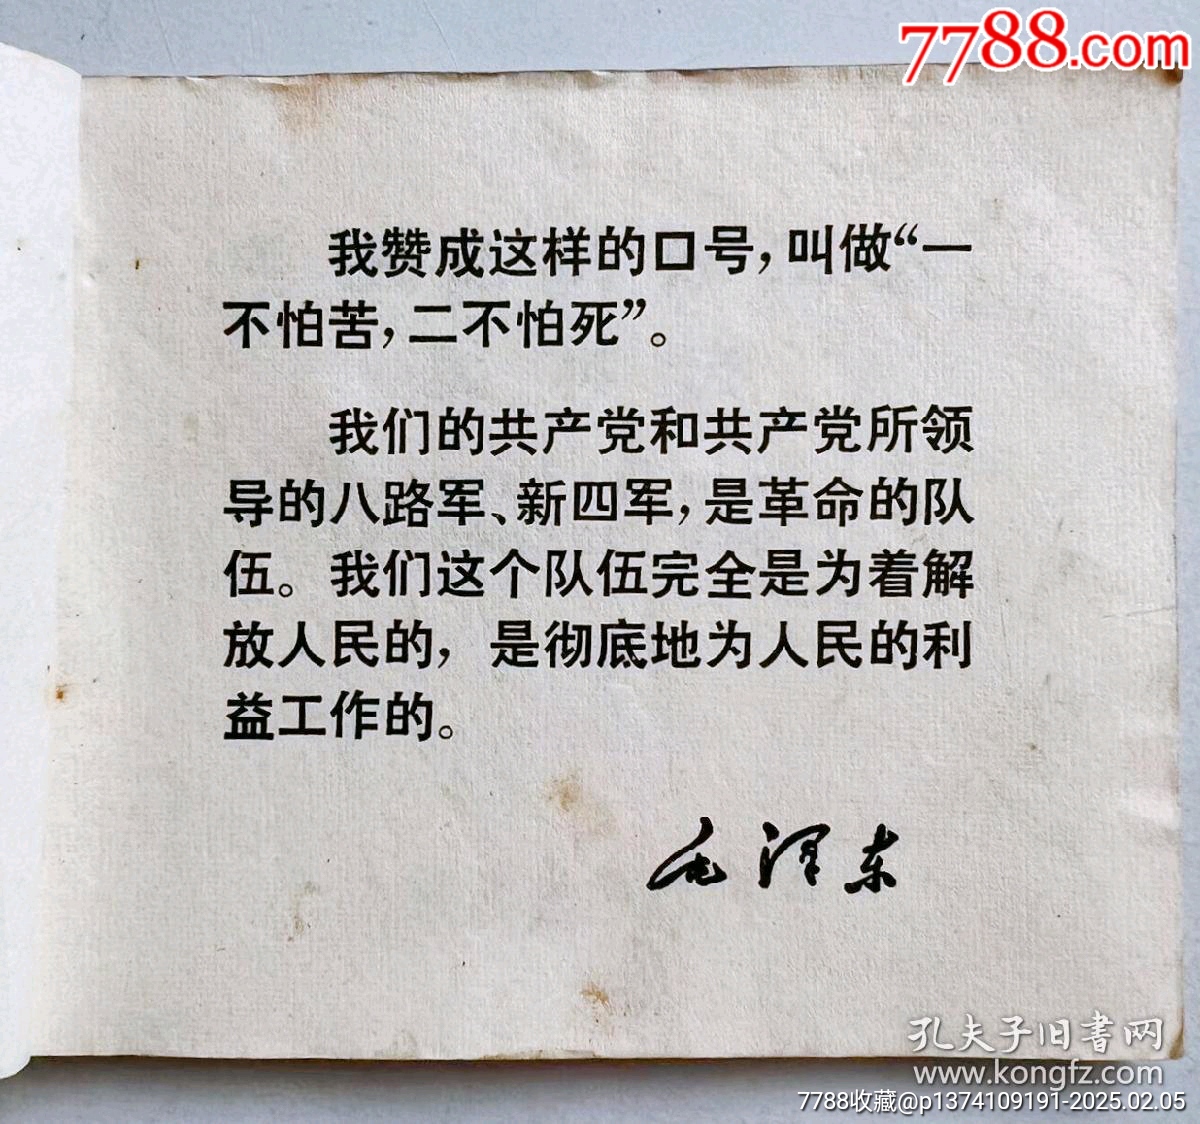 7788.com
我赞成这样的口号，叫做“一
不怕苦，二不怕死”。
我们的共产党和共产党所领
导的八路军、新四军，是革命的队
伍。我们这个队伍完全是为着解
放人民的，是彻底地为人民的利
益工作的。
毛泽东
孔夫子旧書网
www.kongfz.com
7788收藏@p1374109191-2025.02.05